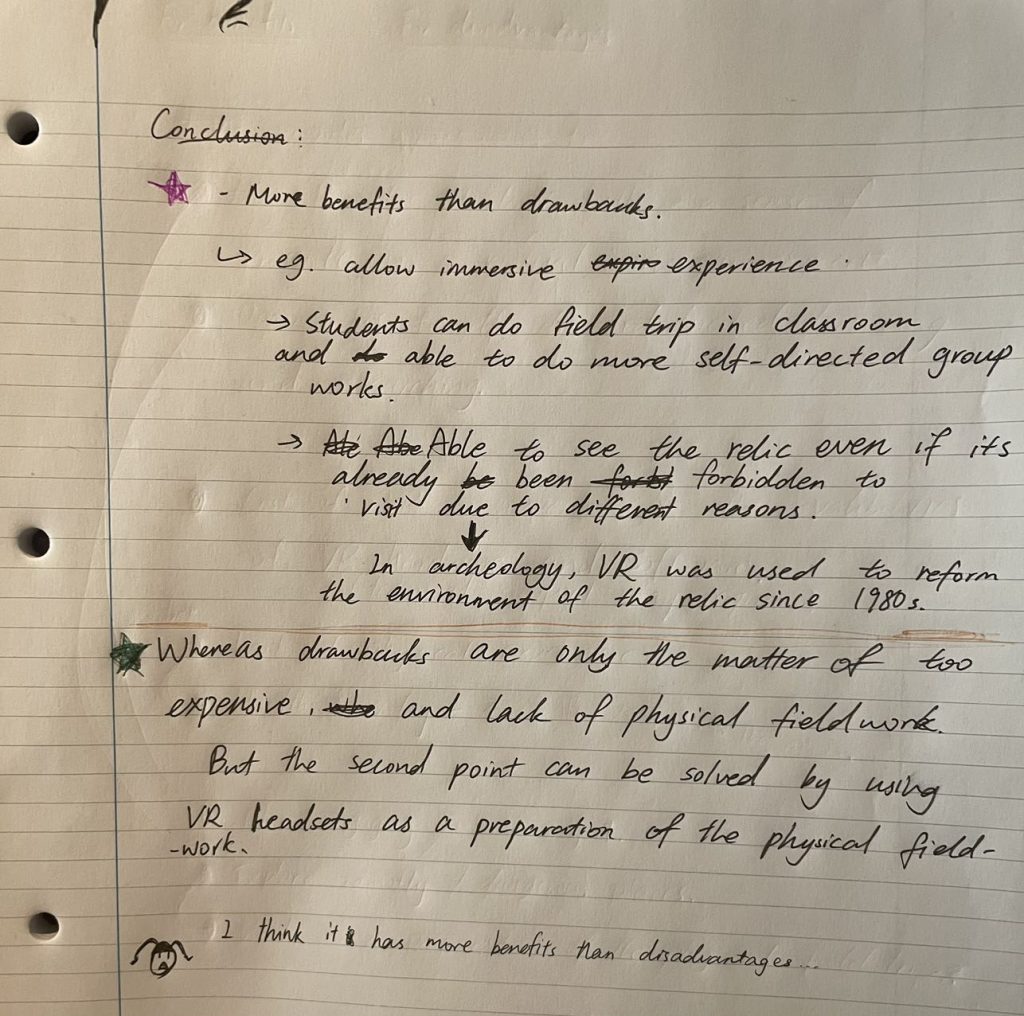 Conclusion:
- More benefits than drawbacks.
↳ eg. allow immersive expire experience.
→ Students can do field trip in classroom
and do able to do more self-directed group
works.
→ Able to see the relic even if its
already be been forbidden to
visit due to different reasons.
↓
In archeology, VR was used to reform
the environment of the relic since 1980s.
Whereas drawbacks are only the matter of too
expensive, and lack of physical fieldwork.
But the second point can be solved by using
VR headsets as a preparation of the physical field-
-work.
I think it has more benefits than disadvantages...